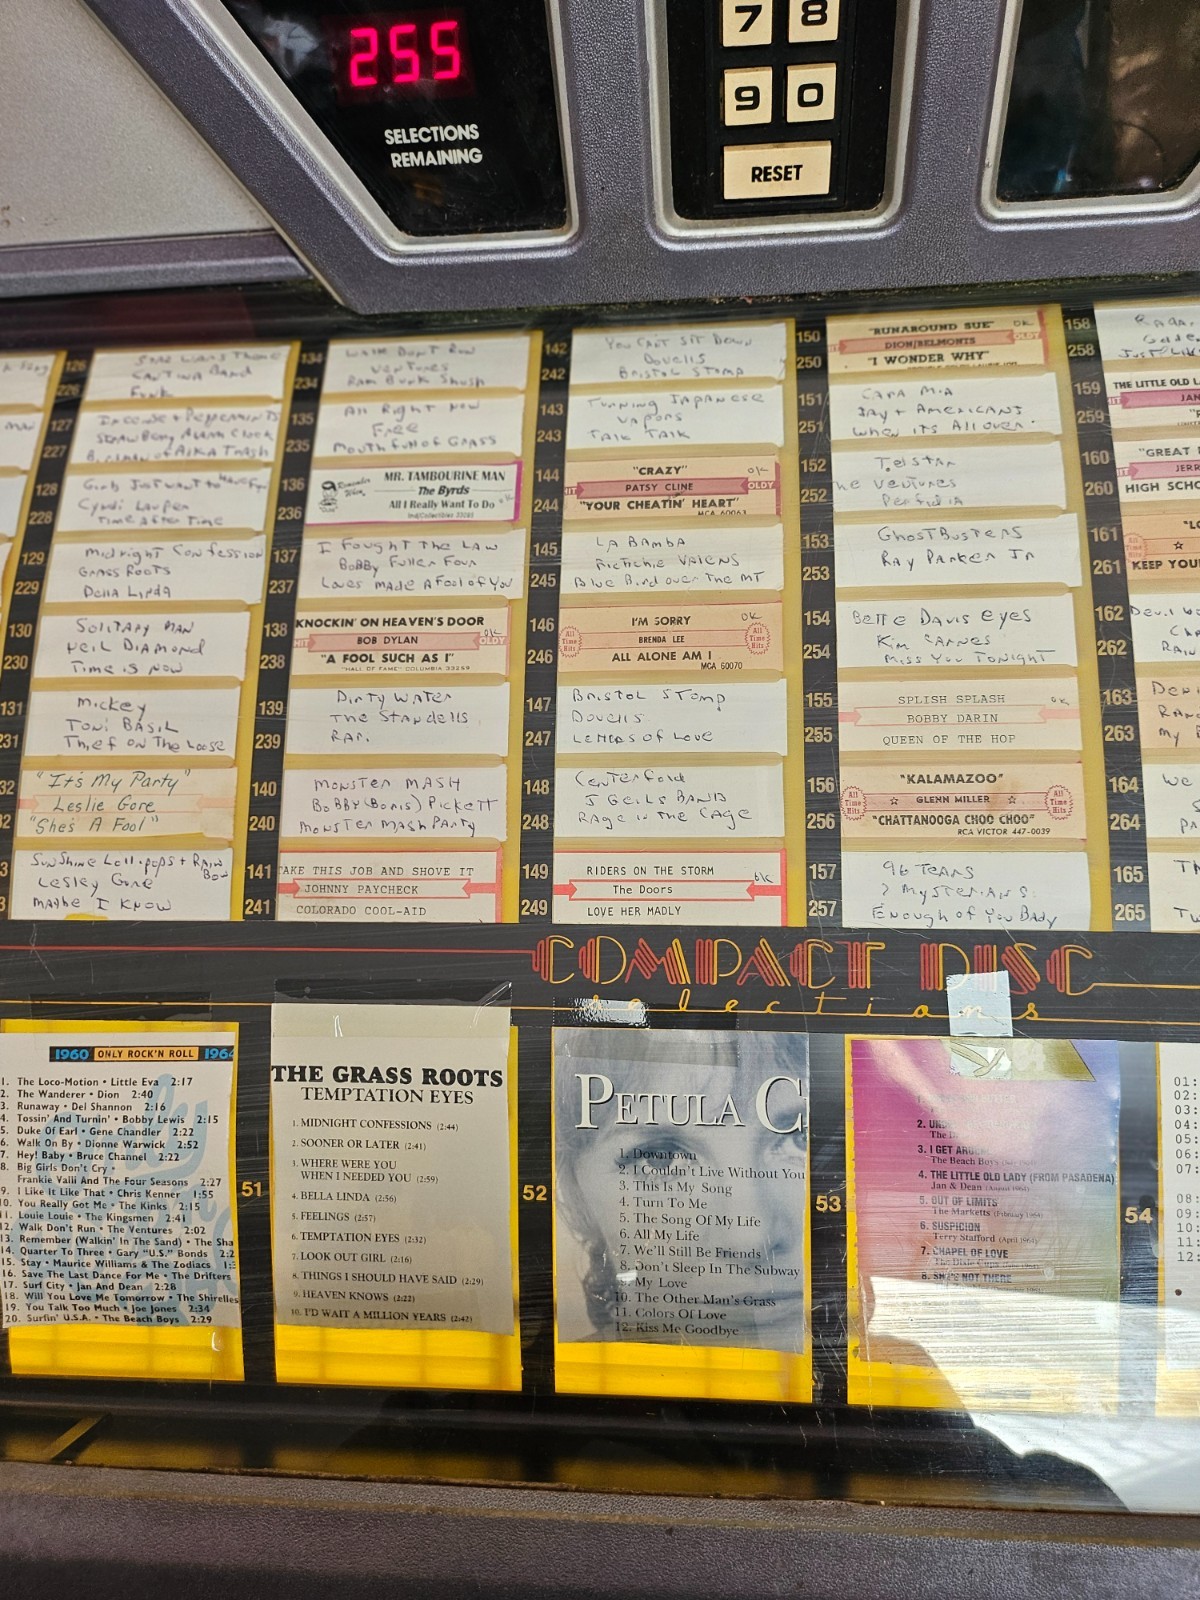 255
SELECTIONS
REMAINING
7 8
9 0
RESET
126
226
Star Wars Theme
Cantina Band
Funk
127
227
Incense + Peppermints
Strawberry Alarm Clock
128
228
Girls Just Want to Have Fun
Cyndi Lauper
Time After Time
129
229
Midnight Confession
Grass Roots
130
230
Solitary Man
Neil Diamond
Time is Now
131
231
Mickey
Toni Basil
Thief on the Loose
32
"It's My Party"
Leslie Gore
"She's A Fool"
Sunshine Lollipops + Rain
Bow
Lesley Gore
Maybe I Know
134
234
Walk Don't Run
Ventures
135
235
All Right Now
Free
Mouthfull of Grass
136
236
Remember When
MR. TAMBOURINE MAN
The Byrds
All I Really Want To Do
137
237
I Fought The Law
Bobby Fuller Four
Loves Made A Fool of You
138
238
KNOCKIN' ON HEAVEN'S DOOR
HIT BOB DYLAN OLDY
"A FOOL SUCH AS I"
"HALL OF FAME" COLUMBIA 33259
139
239
Dirty Water
The Standells
140
240
Monster Mash
Bobby (Boris) Pickett
Monster Mash Party
141
241
TAKE THIS JOB AND SHOVE IT
JOHNNY PAYCHECK
COLORADO COOL-AID
142
242
You Can't Sit Down
Dovells
Bristol Stomp
143
243
Turning Japanese
Vapors
Talk Talk
144
244
"CRAZY" ok
HIT PATSY CLINE OLDY
"YOUR CHEATIN' HEART"
MCA 60063
145
245
La Bamba
Richie Valens
Blue Bird over the MT
146
246
I'M SORRY OK
All Time Hits BRENDA LEE All Time Hits
ALL ALONE AM I
MCA 60070
147
247
Bristol Stomp
Dovells
Letters of Love
148
248
Centerfold
J Geils Band
Rage in the Cage
149
249
RIDERS ON THE STORM ok
The Doors
LOVE HER MADLY
150
250
"RUNAROUND SUE" OK
HIT DION/BELMONTS OLDY
"I WONDER WHY"
151
251
Cara Mia
Jay + Americans
When its All over
152
252
Telstar
he Ventures
Perfidia
153
253
GhostBusters
Ray Parker Jr
154
254
Bette Davis eyes
Kim Carnes
Miss You Tonight
155
255
SPLISH SPLASH ok
BOBBY DARIN
QUEEN OF THE HOP
156
256
"KALAMAZOO"
All Time Hits ☆ GLENN MILLER ☆ All Time Hits
"CHATTANOOGA CHOO CHOO"
RCA VICTOR 447-0039
157
257
96 Tears
? Mysterians
Enough of You Baby
158
258
159
259
THE LITTLE OLD L
HIT JAN
160
260
"GREAT
JERR
HIGH SCHO
161
261
"LO
All Time Hits ☆
KEEP YOUR
162
262
163
263
164
264
We
165
265
COMPACT DISC
selections
1960 ONLY ROCK'N ROLL 1964
1. The Loco-Motion • Little Eva 2:17
2. The Wanderer • Dion 2:40
3. Runaway • Del Shannon 2:16
4. Tossin' And Turnin' • Bobby Lewis 2:15
5. Duke Of Earl • Gene Chandler 2:22
6. Walk On By • Dionne Warwick 2:52
7. Hey! Baby • Bruce Channel 2:22
8. Big Girls Don't Cry •
Frankie Valli And The Four Seasons 2:27
9. I Like It Like That • Chris Kenner 1:55
10. You Really Got Me • The Kinks 2:15
11. Louie Louie • The Kingsmen 2:41
12. Walk Don't Run • The Ventures 2:02
13. Remember (Walkin' In The Sand) • The Sha
14. Quarter To Three • Gary "U.S." Bonds 2:2
15. Stay • Maurice Williams & The Zodiacs 1:3
16. Save The Last Dance For Me • The Drifters
17. Surf City • Jan And Dean 2:28
18. Will You Love Me Tomorrow • The Shirelles
19. You Talk Too Much • Joe Jones 2:34
20. Surfin' U.S.A. • The Beach Boys 2:29
51
THE GRASS ROOTS
TEMPTATION EYES
1. MIDNIGHT CONFESSIONS (2:44)
2. SOONER OR LATER (2:41)
3. WHERE WERE YOU
WHEN I NEEDED YOU (2:59)
4. BELLA LINDA (2:56)
5. FEELINGS (2:57)
6. TEMPTATION EYES (2:32)
7. LOOK OUT GIRL (2:16)
8. THINGS I SHOULD HAVE SAID (2:29)
9. HEAVEN KNOWS (2:22)
10. I'D WAIT A MILLION YEARS (2:42)
52
PETULA C
1. Downtown
2. I Couldn't Live Without You
3. This Is My Song
4. Turn To Me
5. The Song Of My Life
6. All My Life
7. We'll Still Be Friends
8. Don't Sleep In The Subway
9. My Love
10. The Other Man's Grass
11. Colors Of Love
12. Kiss Me Goodbye
53
2. UN
3. I GET AROUND
The Beach Boys
4. THE LITTLE OLD LADY (FROM PASADENA)
Jan & Dean (August 1964)
5. OUT OF LIMITS
The Marketts (February 1964)
6. SUSPICION
Terry Stafford (April 1964)
7. CHAPEL OF LOVE
The Dixie Cups
8. SHE'S NOT THERE
54
01:
02:
03:
04:
05:
06:
07:
08:
09:
10:
11:
12: